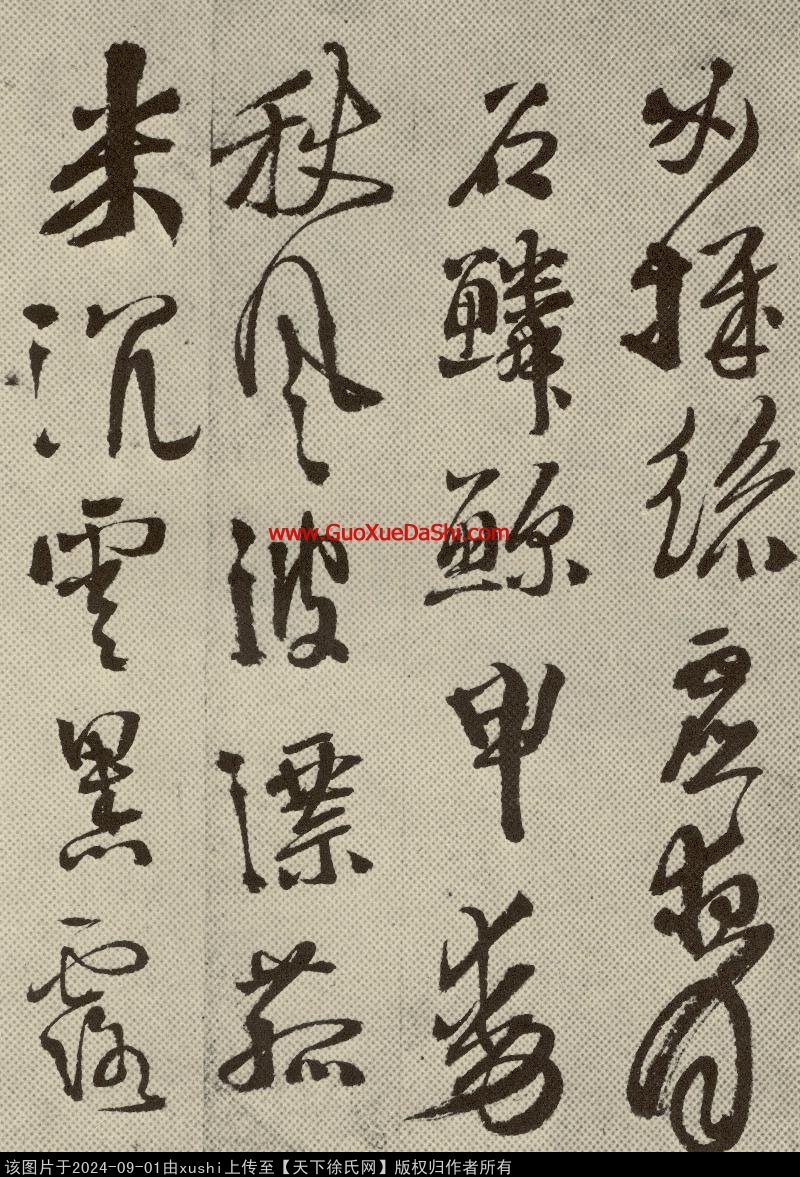 女機絲虛夜月
石鱗鯨甲動
秋風波漂菰
米沉雲黑露
www.GuoXueDaShi.com
该图片于2024-09-01由xushi上传至【天下徐氏网】版权归作者所有